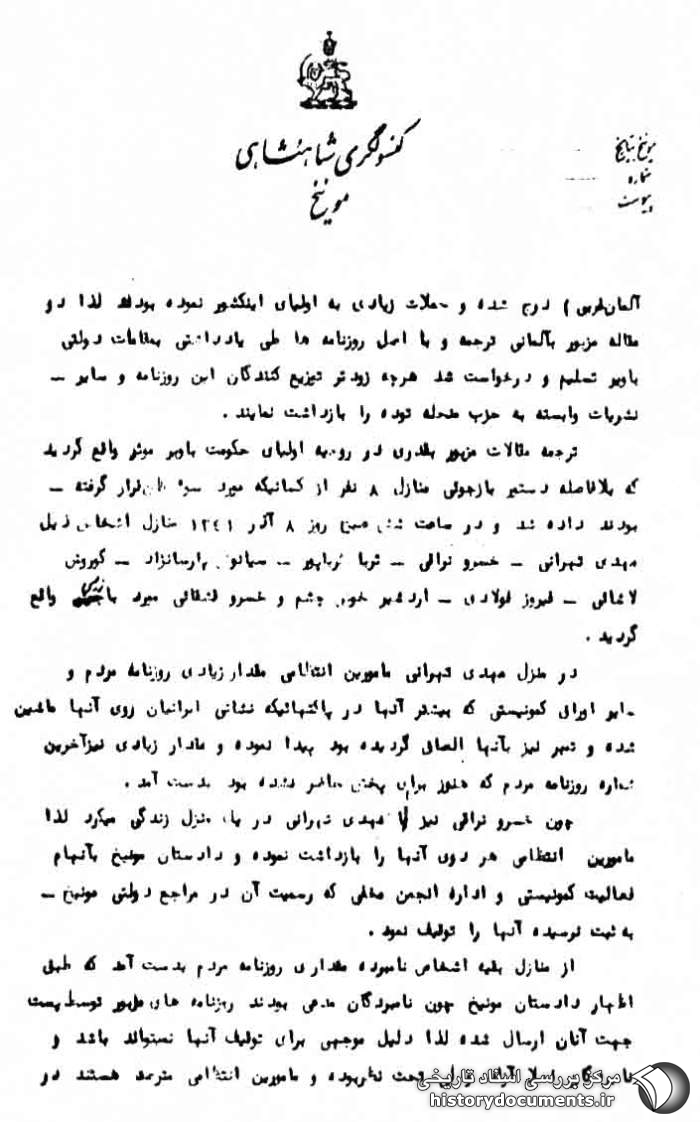 کنسولگری شاهنشاهی
مونیخ
مونیخ بتاریخ
شماره
پیوست
آلمان غربی ) درج شده و حملات زیادی به اولیای اینکشور نموده بودند لذا دو
مقاله مزبور بآلمانی ترجمه و با اصل روزنامه ها طی یادداشتی بمقامات دولتی
باویر تسلیم و درخواست شد هرچه زودتر توزیع کنندگان این روزنامه و سایر –
نشریات وابسته به حزب منحله توده را بازداشت نمایند .
ترجمه مقالات مزبور بقدری در روحیه اولیای حکومت باویر موثر واقع گردید
که بلافاصله دستور بازجوئی منازل ۸ نفر از کسانیکه مورد سوء ظن قرار گرفته –
بودند داده شد و در ساعت شش صبح روز ۸ آذر ۱۳٤۱ منازل اشخاص ذیل
مهدی تهرانی – خسرو نراقی – ثریا ثریاپور – سیاوش پارسانژاد – کوروش
لاشائی – فیروز فولادی – اردشیر خوش چشم و خسرو قشقائی مورد بازرسی واقع
گردید .
در منزل مهدی تهرانی مامورین انتظامی مقدار زیادی روزنامه مردم و
سایر اوراق کمونیستی که بیشتر آنها در پاکتهائیکه نشانی ایرانیان روی آنها ماشین
شده و تمبر نیز بآنها الصاق گردیده بود پیدا نموده و مقدار زیادی نیز آخرین
شماره روزنامه مردم که هنوز برای پخش حاضر نشده بود بدست آمد .
چون خسرو نراقی نیز با مهدی تهرانی در یک منزل زندگی میکرد لذا
مامورین انتظامی هر دوی آنها را بازداشت نموده و دادستان مونیخ بآتهام
فعالیت کمونیستی و ادارهٔ انجمن مخفی که رسمیت آن در مراجع دولتی مونیخ –
به ثبت نرسیده آنها را توقیف نمود .
از منازل بقیه اشخاص نامبرده مقداری روزنامه مردم بدست آمد که طبق
اظهار دادستان مونیخ چون نامبردگان مدعی بودند روزنامه های مزبور توسط پست
جهت آنان ارسال شده لذا دلیل موجهی برای توقیف آنها نمیتواند باشد و
تحت نظر بوده و مامورین انتظامی مترصد هستند در
مرکز بررسی اسناد تاریخی
historydocuments.ir